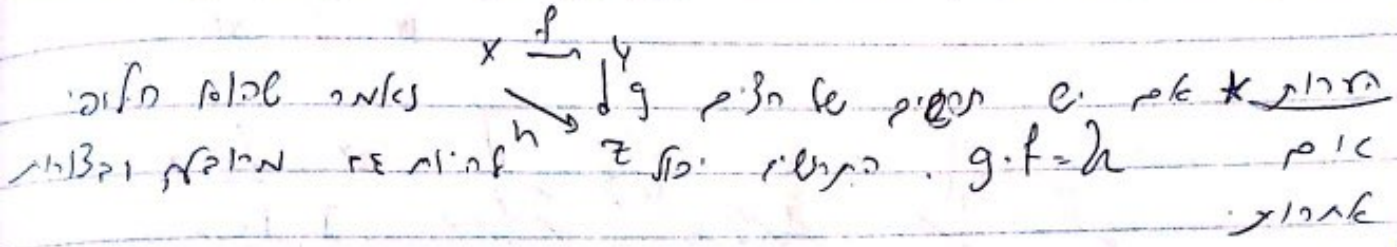 X f Y
הערות * אם יש תרשים של חצים g נאמר שהוא חילופי
אם g·f=h . התרשים יכול Z h להיות גם מרובע ובצורות
אחרות.